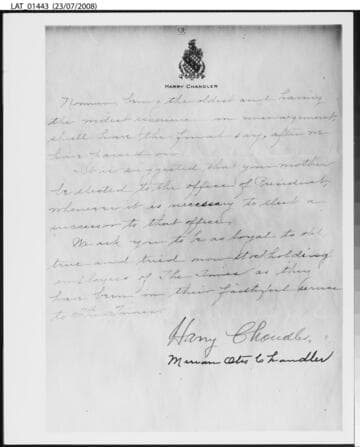 LAT_01443 (23/07/2008)
HARRY CHANDLER
Norman being the oldest and having
the most experience in management,
shall have the final say, after we
have passed on.
suggested that your mother
be elected to the office of President,
whenever it is necessary to elect a
successor to that office.
We ask you to be as loyal to old
true and tried non stockholding
employees of The Times as they
have been in their faithful service
to The Times.
Harry Chandler,
Marian Otis Chandler